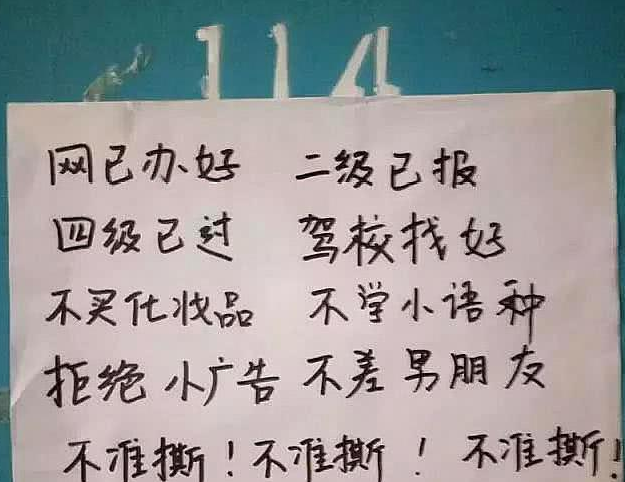 114
网已办好 二级已报
四级已过 驾校找好
不买化妆品 不学小语种
拒绝小广告 不差男朋友
不准撕！不准撕！不准撕！